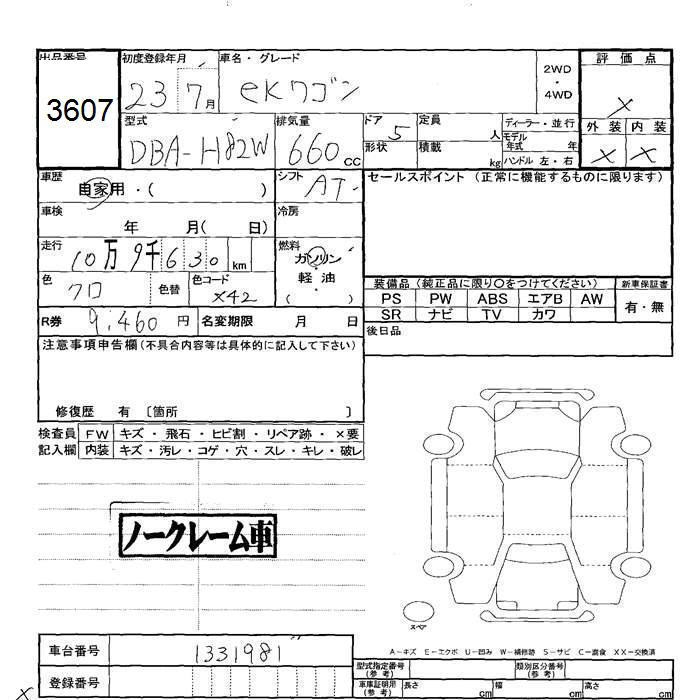 出品番号 初度登録年月 車名・グレード 2WD・4WD 評価点
3607 23 7月 eKワゴン X
型式 排気量 ドア 定員 ディーラー・並行 外装 内装
DBA-H82W 660cc 5 人 モデル年式 年 X X
形状 積載 kg ハンドル 左・右
車歴 シフト AT セールスポイント (正常に機能するものに限ります)
自家用・( )
車検 冷房
年 月( 日)
走行 燃料
10万9千630km ガソリン・軽油
色 色替 色コード ( )
クロ X42
装備品 (純正品に限り〇をつけてください) 新車保証書
PS PW ABS エアB AW 有・無
SR ナビ TV カワ
R券 9,460円 名変期限 月 日
後日品
注意事項申告欄(不具合内容等は具体的に記入して下さい)
修復歴 有 〔箇所 〕
検査員 FW キズ・飛石・ヒビ割・リペア跡・×要
記入欄 内装 キズ・汚レ・コゲ・穴・スレ・キレ・破レ
ノークレーム車
スペア
A-キズ E-エクボ U-凹み W-補修跡 S-サビ C-腐食 XX-交換済
車台番号 1331981
型式指定番号(参考) 類別区分番号(参考)
登録番号
車庫証明用(参考) 長さ cm 幅 cm 高さ cm
X